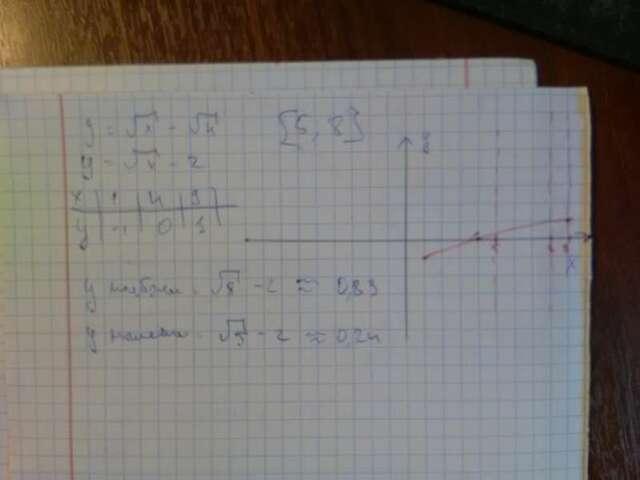 y = √x - √4 [5, 8]
y = √x - 2
x | 1 | 4 | 9
y | -1 | 0 | 1
y наибол. √8 - 2 ≈ 0,83
y наимен. √5 - 2 ≈ 0,24
y
x